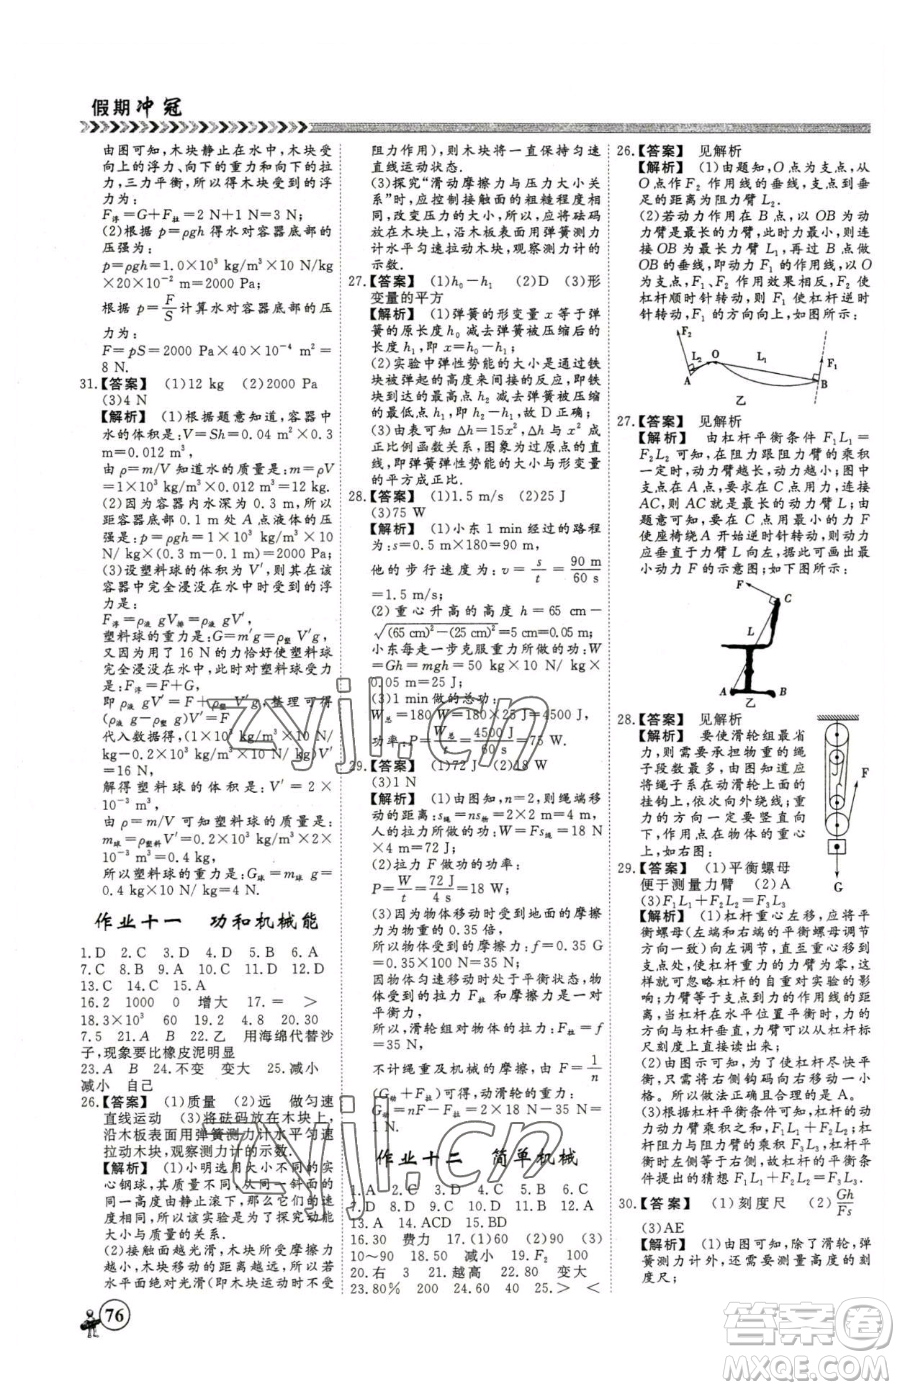 假期冲冠
由图可知,木块静止在水中,木块受
向上的浮力、向下的重力和向下的拉
力,三力平衡,所以得木块受到的浮
力为:
F浮=G+F拉=2 N+1 N=3 N
(2)由 p=ρgh 得水对容器底部的
压强为:
p=ρgh=1.0×10³ kg/m³×10 N/kg
×20×10⁻² m=2000 Pa;
根据 p=F/S 计算水对容器底部的压
力为:
F=pS=2000 Pa×40×10⁻⁴ m²=
8 N.
31.【答案】 (1)12 kg (2)2000 Pa
(3)4 N
【解析】 (1)根据题意知道,容器中
水的体积是:V=Sh=0.04 m²×0.3
m=0.012 m³,
由 ρ=m/V 知道水的质量是:m=ρV
=1×10³ kg/m³×0.012 m³=12 kg.
(2)因为容器内水深为 0.3 m,所以
距容器底部 0.1 m 处 A 点液体的压
强是:p=ρgh=1×10³ kg/m³×10
N/kg×(0.3 m-0.1 m)=2000 Pa.
(3)设塑料球的体积为 V′,其在该
容器中完全浸没在水中时受到的浮
力是:
F浮=ρ液 gV排=ρ液 gV′,
塑料球的重力是:G=M′g=ρ塑 V′g;
又因为用了 16 N 的力恰好使塑料球
完全浸没在水中,此时对塑料球受力
是:F浮=F+G,
即ρ液 gV′=F+ρ塑 gV′,整理可得
(ρ液-ρ塑)gV′=F
代入数据得:(1×10³ kg/m³-0.2×
10³ kg/m³)×10 N/kg×V′
=16 N,
解得塑料球的体积是:V′=2×
10⁻³ m³
由ρ=m/V 可知,塑料球的质量是:
m球=ρ塑料V′=0.2×10³ kg/m³×2×
10⁻³ m³=0.4 kg,
所以塑料球的重力是:G球=m球g=
0.4 kg×10 N/kg=4 N.
作业十一 功和机械能
1.D 2.C 3.D 4.D 5.B 6.A
7.C 8.B 9.A 10.A 11.D 12.D
13.C 14.C 15.A
16.2 1000 0 增大 17.= >
18.3×10³ 60 19.2 4.8 20.30
7.5 21.A B 22.乙 用海绵代替沙
子,现象要比橡皮泥明显
23.A B 24.不变 变大 25.减小
减小 自己
26.【答案】 (1)质量 (2)远 做匀速
直线运动 (3)将砝码放在木块上,
沿木板表面用弹簧测力计水平匀速
拉动木块,观察测力计的示数.
【解析】 (1)小明选用大小不同的实
心钢球,使它们从同一斜面的同一
高度由静止滚下,那么它们的质量就
会不同,故在探究动能大小与质量的
关系.
(2)接触面越光滑,木块受摩擦力越
小,木块移动的距离越远,一直到木
块绝对光滑(即木块运动时不受
阻力作用),则木块将一直保持匀速
直线运动状态.
(3)探究“滑动摩擦力与压力大小关
系”,应控制接触面的粗糙程度相
同,改变压力的大小,所以应将砝码
放在木块上,沿木板表面用弹簧测力
计水平匀速拉动木块,观察测力计的
示数.
27.【答案】 (1)h₀-h₁ (2)D (3)形
变量的平方
【解析】 (1)弹簧的形变量 x 等于弹
簧的原长度 h₀ 减去弹簧被压缩后的
长度 h₁.
(2)实验中弹性势能的大小是通过铁
块被弹起的高度来间接反应的,应测
量出铁块弹起后到达最高点的高度
减去最低点的高度,故 D 正确;
(3)由表可知 Δh=15x²,Δh 与 x² 成
正比例函数关系,图象为过原点的直
线,即弹簧弹性势能大小与弹簧形变
的平方成正比.
28.【答案】 (1)1.5 m/s (2)25 J
(3)75 W
【解析】 (1)小东 1 min 经过的路程
为:s=0.5 m×180=90 m,
他的步行速度为:v=s/t=90 m/60 s
=1.5 m/s;
(2)重心升高的高度:h=65 cm-
√((65 cm)²-(25 cm)²)=5 cm=0.05 m;
小东每走一步克服重力所做的功:W=
Gh=mgh=50 kg×10 N/kg×
0.05 m=25 J;
(3)1 min 做的总功:
W总=180W=180×25 J=4500 J,
功率:P=W总/t=4500 J/60 s=75 W.
29.【答案】 (1)72 J (2)18 W
(3)1 N
【解析】 (1)由图知,n=2,则绳端移
动的距离:s绳=ns物=2×2 m=4 m,
人的拉力所做的功:W=Fs绳=18 N
×4 m=72 J;
(2)拉力 F 做功的功率:
P=W/t=72 J/4 s=18 W;
(3)因为物体移动时受到的摩擦力
为物体重力的 0.35 倍,
所以物体受到的摩擦力:f=0.35 G
=0.35×100 N=35 N,
因物体匀速移动时处于平衡状态,
则物体受到的 F拉 和摩擦力是一对
平衡力,
所以,滑轮组对物体的拉力:F拉=f=
35 N,
不计绳重及机械的摩擦,由 F=1/n
(G动+F拉)可得,动滑轮的重力:
G动=nF-F拉=2×18 N-35 N=
1 N.
作业十二 简单机械
1.A 2.C 3.D 4.D 5.C 6.C
7.D 8.D 9.C 10.B 11.D 12.D
13.A 14.ACD 15.BD
16.30 费力 17.(1)60 (2)90 (3)
10~90 18.50 减小 19.F₂ 100
20.右 3 21.越高 22.80 变大
23.80% 200 24.60 40 25.> <
26.【答案】 见解析
【解析】 (1)由题知,O点为支点,从
O点作用 F₂ 作用线的垂线,支点到垂
足的距离为阻力臂 L₂.
(2)若动力作用在 B 点,以 OB 为动
力臂是最长的动力臂,则此力最小,则
连接 OB 为最长力臂 L₁,再过 B 点
做 OB 的垂线,即动力 F₁ 的作用线;
由图知,O 为支点,动力、阻力在
支点的两侧,为了满足杠杆平衡的条
件,F₁、F₂ 作用效果应该相反,F₂
使杠杆顺时针转动,F₁ 使杠杆逆时
针转动,F₁ 的方向向上,如图所示:
F₂ L₂ O L₁ F₁ A B 乙
27.【答案】 见解析
【解析】 由杠杆平衡条件 F₁L₁=
F₂L₂ 可知,在阻力跟阻力臂的乘积一
定时,动力臂越长,动力越小;图中支
点在 A 点,所以动力应作用在C点,连接
AC,所以 AC 就是最长的动力臂;由
题意可知,当在 C 点用最小的力 F
使座椅绕 A 开始逆时针转动时,动力
应垂直于AC向左,据此可画出最
小动力F;如下图所示:
F C L A B 乙
28.【答案】 见解析
【解析】 要使滑轮组最省
力,则需要承担物重的绳子
段数最多,所以从图上看应
将绳子系在动滑轮上面的
挂钩上,依次向外绕线;重
力的方向一定要竖直向
下,作用点在物体的重心
上,如右图:
F G
29.【答案】 (1)平衡螺母
便于测量力臂 (2)A
(3)F₁L₁+F₂L₂=F₃L₃
【解析】 (1)杠杆重心左移,应将平
衡螺母(左端和右端的平衡螺母调节
方向一致)向右调节,直至重心移到
支点处,使重力的力臂为零,这样
就可忽略杠杆自重对实验的影响;力
臂等于支点到力的作用线的距
离,当杠杆在水平位置平衡时,力的
方向与杠杆垂直,力臂可以从杠杆标
尺刻度上直接读出来;
(2)由图示可知,为了使杠杆尽快平
衡,可以移动右侧钩码到支点的距
离,故做法正确且合理的是 A.
(3)根据杠杆平衡条件可知,左侧的
动力动力臂乘积为F₁L₁+F₂L₂,右侧
阻力与阻力臂的乘积 F₃L₃,由
F₁L₁+F₂L₂=F₃L₃,故由杠杆平衡条
件提出的猜想 F₁L₁+F₂L₂=F₃L₃.
30.【答案】 (1)刻度尺 (2)Gh/Fs
(3)AE
【解析】 (1)由图可知,除了滑轮、弹
簧测力计外,还需要测量高度的刻
度尺;
76
zyjl.cn
zyjl.cn
答案圈
MXQE.COM